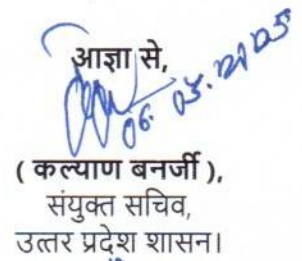 आज्ञा से,
06.05.2025
( कल्याण बनर्जी ),
संयुक्त सचिव,
उत्तर प्रदेश शासन।